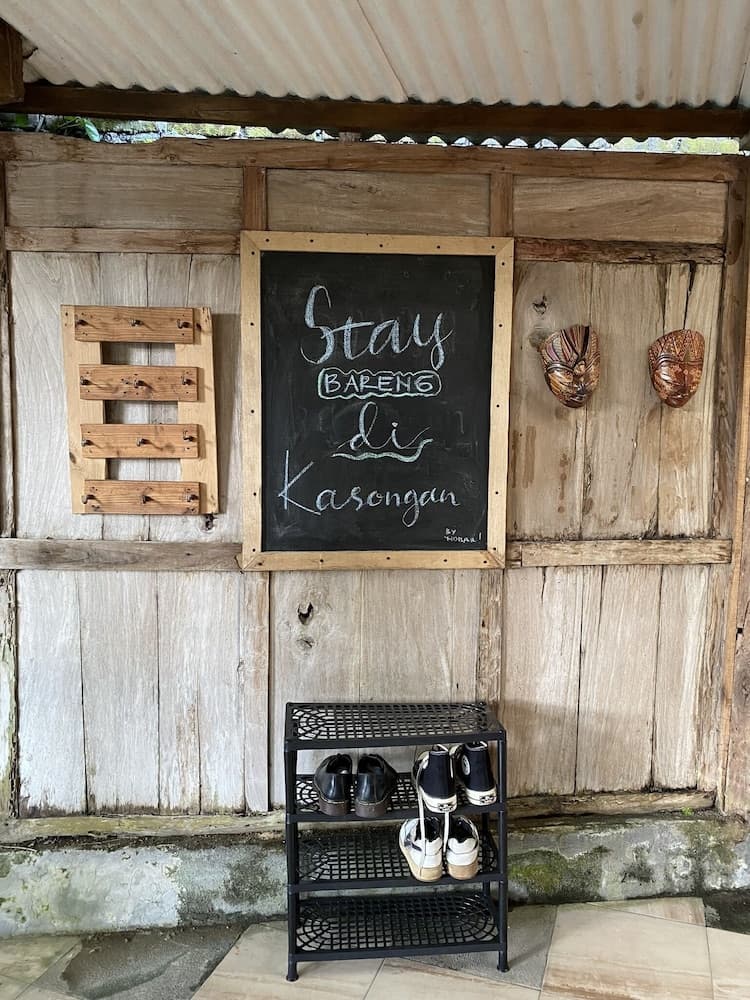 Stay
BARENG
di
Kasongan
BY